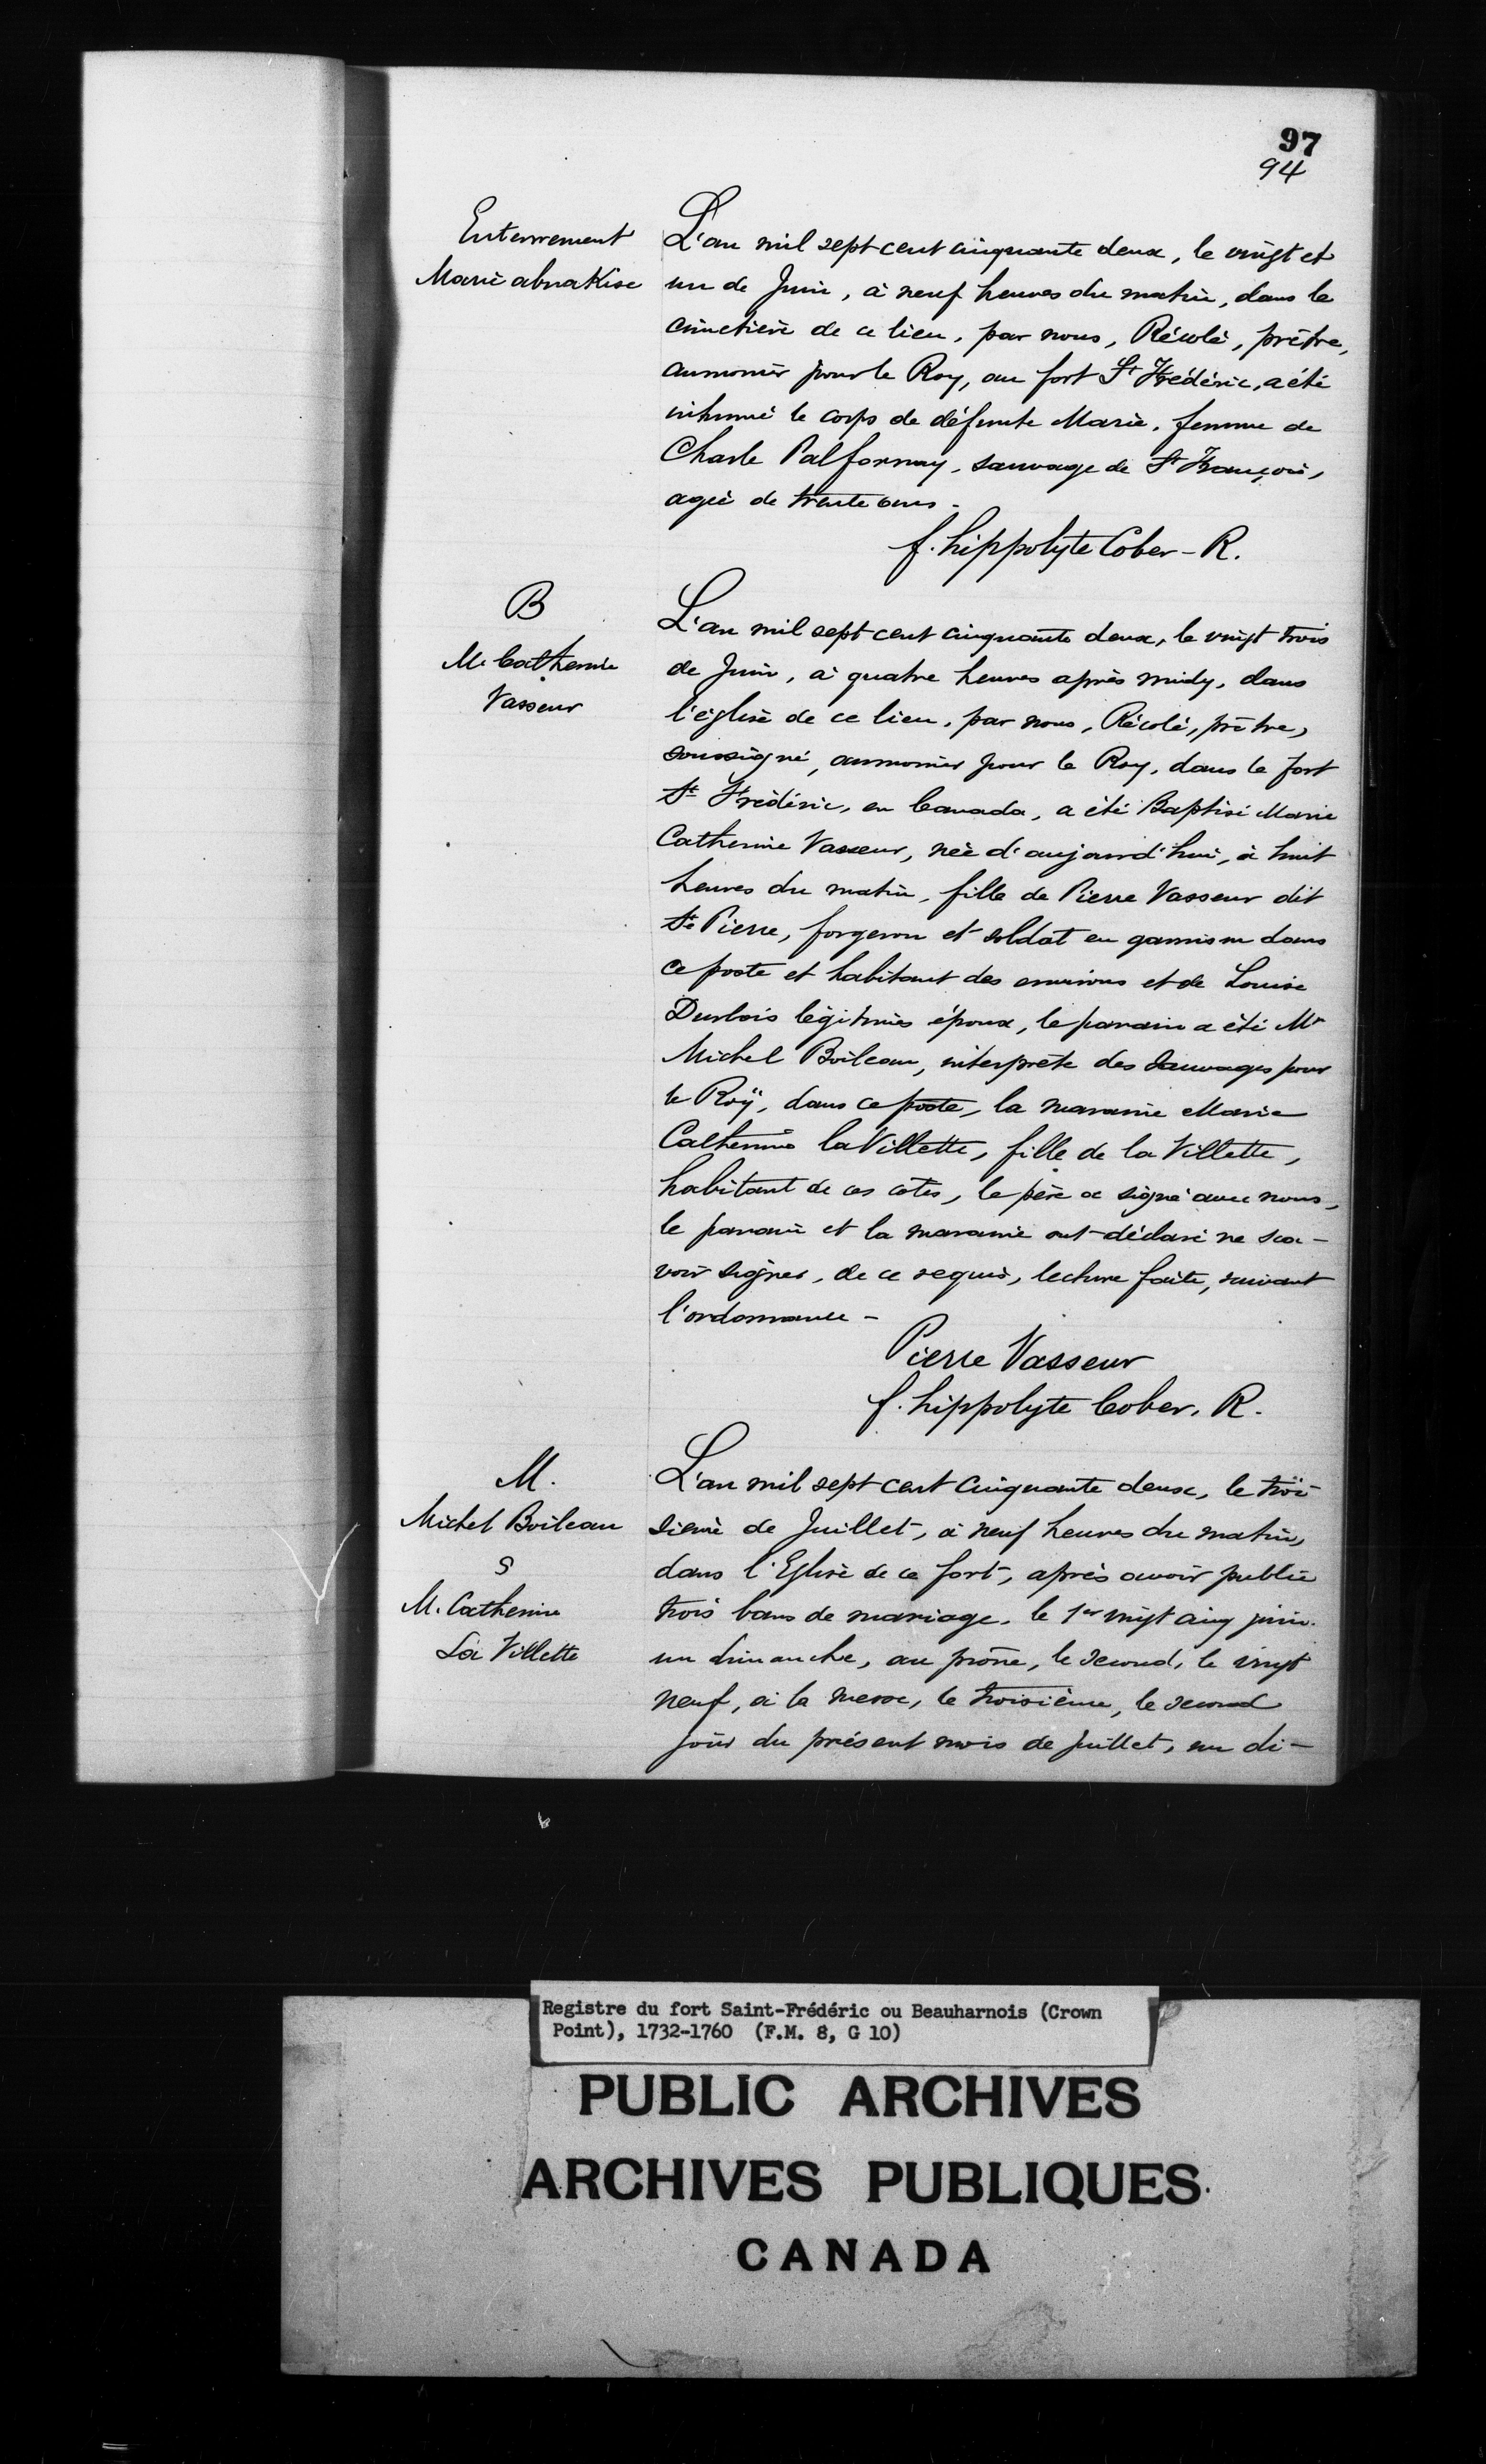 97
94
Enterrement
Marie abnakise
L'an mil sept cent cinquante deux, le vingt et
un de Juin, à neuf heures du matin, dans le
cimetière de ce lieu, par nous, Récolé, prêtre,
aumonier pour le Roy, au fort St Frédéric, a été
inhumé le corps de défunte Marie, femme de
Charle Palfornay, sauvage de St François,
agée de trente ans.
f. hippolyte Cober - R.
B
M. Catherine
Vasseur
L'an mil sept cent cinquante deux, le vingt trois
de Juin, à quatre heures après midy, dans
l'église de ce lieu, par nous, Récolé, prêtre,
soussigné, aumonier pour le Roy, dans le fort
St Frédéric, en Canada, a été Baptisé Marie
Catherine Vasseur, née d'aujourd'hui, à huit
heures du matin, fille de Pierre Vasseur dit
St Pierre, forgeron et soldat en garnison dans
ce poste et habitant des environs et de Louise
Durbois légitimes époux, le parain a été Mr
Michel Boileau, interprète des Sauvages pour
le Roÿ, dans ce poste, la maraine Marie
Catherine la Villette, fille de la Villette,
habitant de ces côtes, le père a signé avec nous,
le parain et la maraine ont déclaré ne sca-
voir signer, de ce requis, lecture faite, suivant
l'ordonnance -
Pierre Vasseur
f. hippolyte Cober. R.
M.
Michel Boileau
S
M. Catherine
La Villette
L'an mil sept cent cinquante deux, le troi-
sième de Juillet, à neuf heures du matin,
dans l'Eglise de ce fort, après avoir publié
trois bans de mariage, le 1er vingt cinq juin.
un dimanche, au prône, le second, le vingt
neuf, à la messe, le troisième, le second
jour du présent mois de juillet, un di-
Registre du fort Saint-Frédéric ou Beauharnois (Crown
Point), 1732-1760 (F.M. 8, G 10)
PUBLIC ARCHIVES
ARCHIVES PUBLIQUES
CANADA